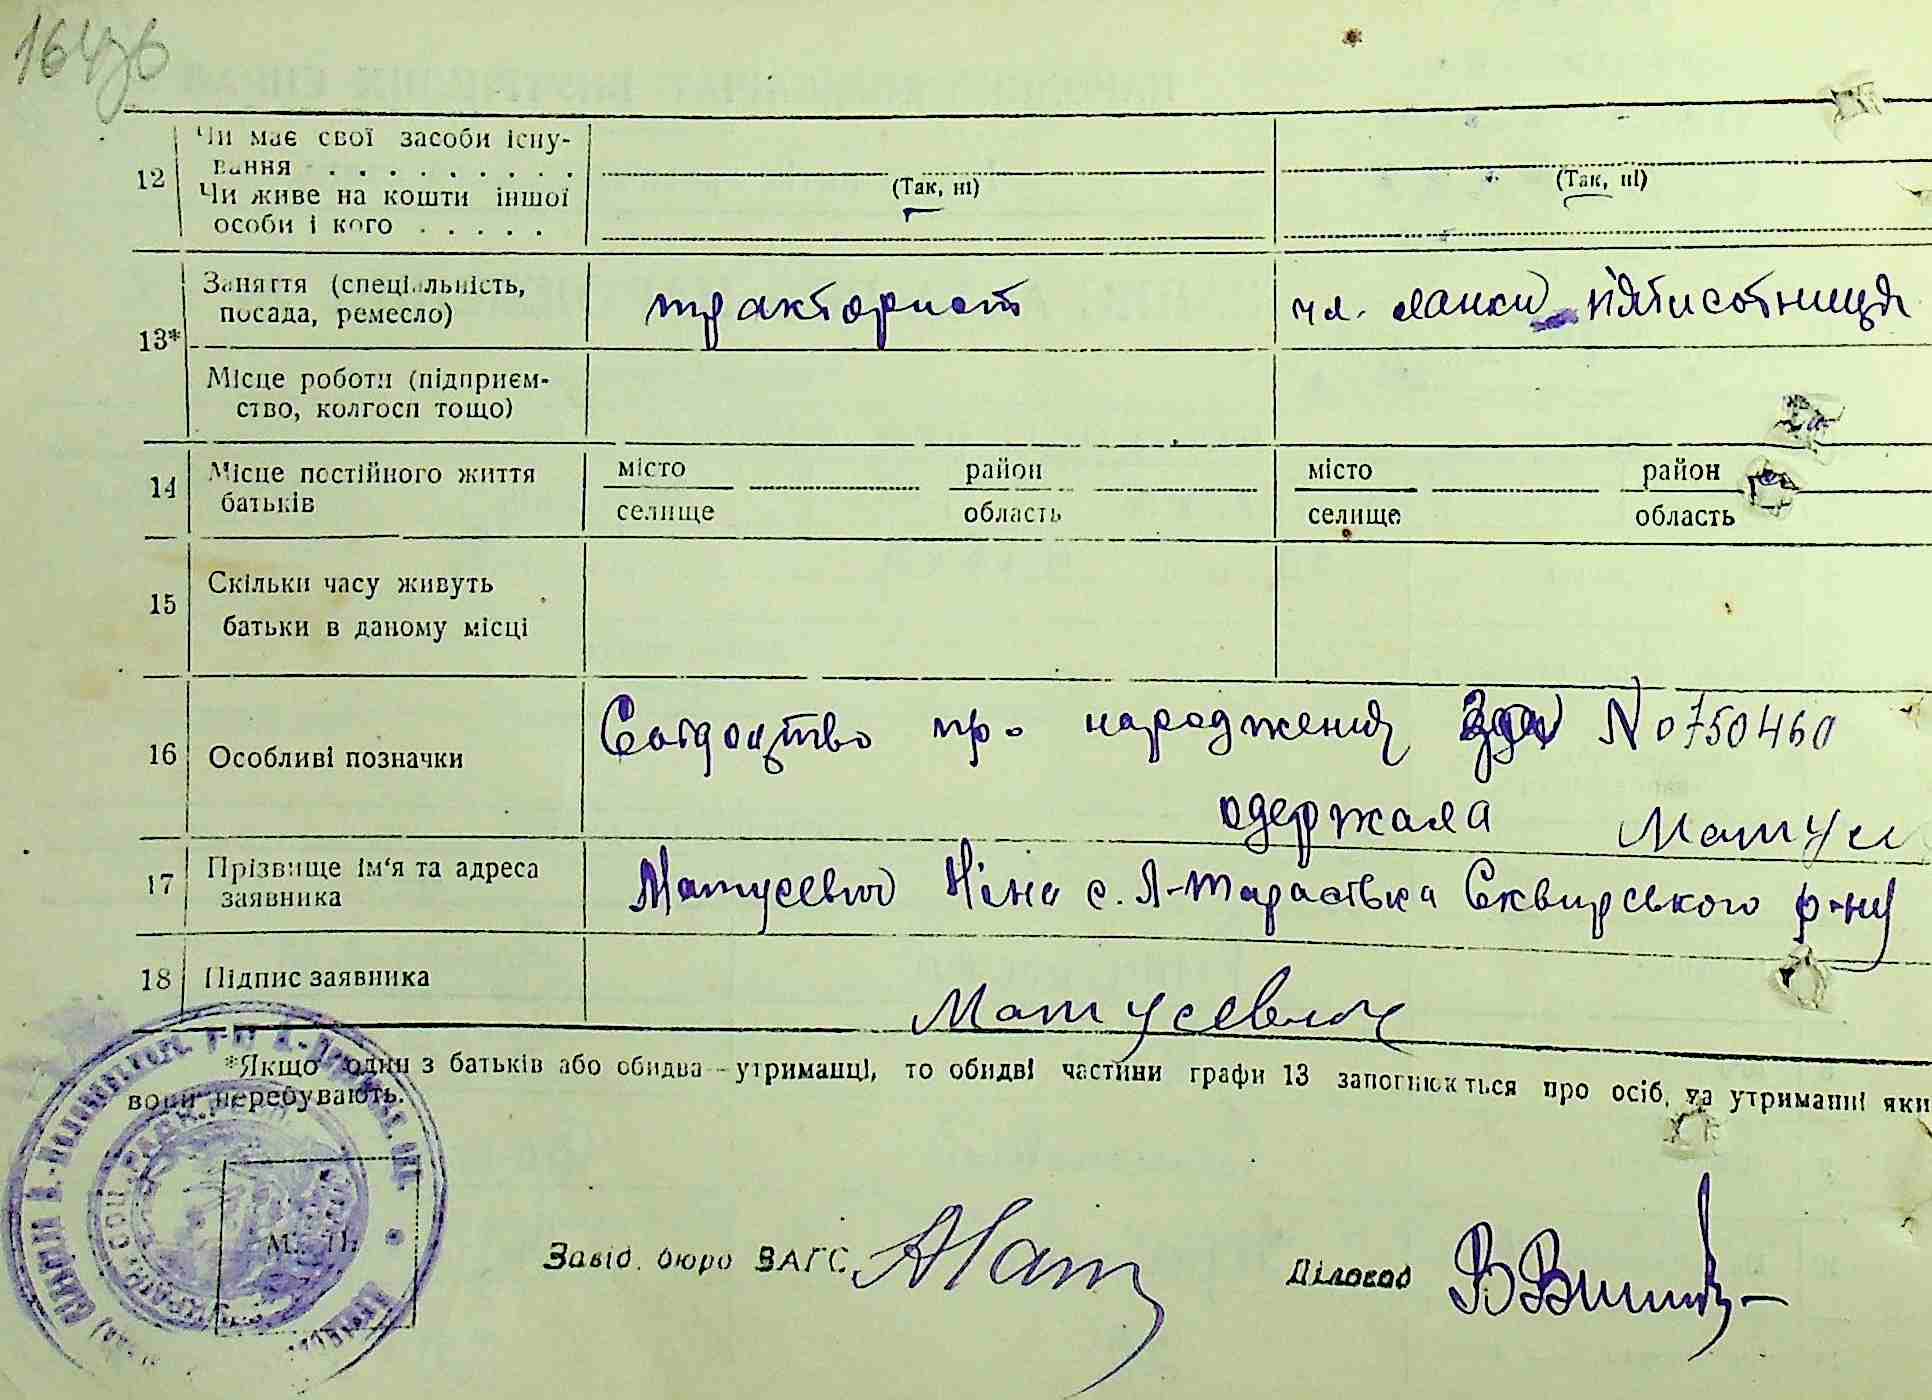 12
Чи має свої засоби існу-
вання . . . . . . . . . .
(Так, ні)
(Так, ні)
Чи живе на кошти іншої
особи і кого . . . . .
13*
Заняття (спеціальність,
посада, ремесло)
тракторист
чл. ланки п'ятисотниця
Місце роботи (підприєм-
ство, колгосп тощо)
14
Місце постійного життя
батьків
місто
селище
район
область
місто
селище
район
область
15
Скільки часу живуть
батьки в даному місці
16
Особливі позначки
Свідоцтво про народження № 0750460
одержала Матус
17
Прізвище ім'я та адреса
заявника
Матусевич Ніна с. Тарасівка Сквирського р-ну
18
Підпис заявника
Матусевич
*Якщо один з батьків або обидва — утриманці, то обидві частини графи 13 заповнюються про осіб, на утриманні яки
вони перебувають.
М. П.
Завід. бюро ЗАГС
Діловод